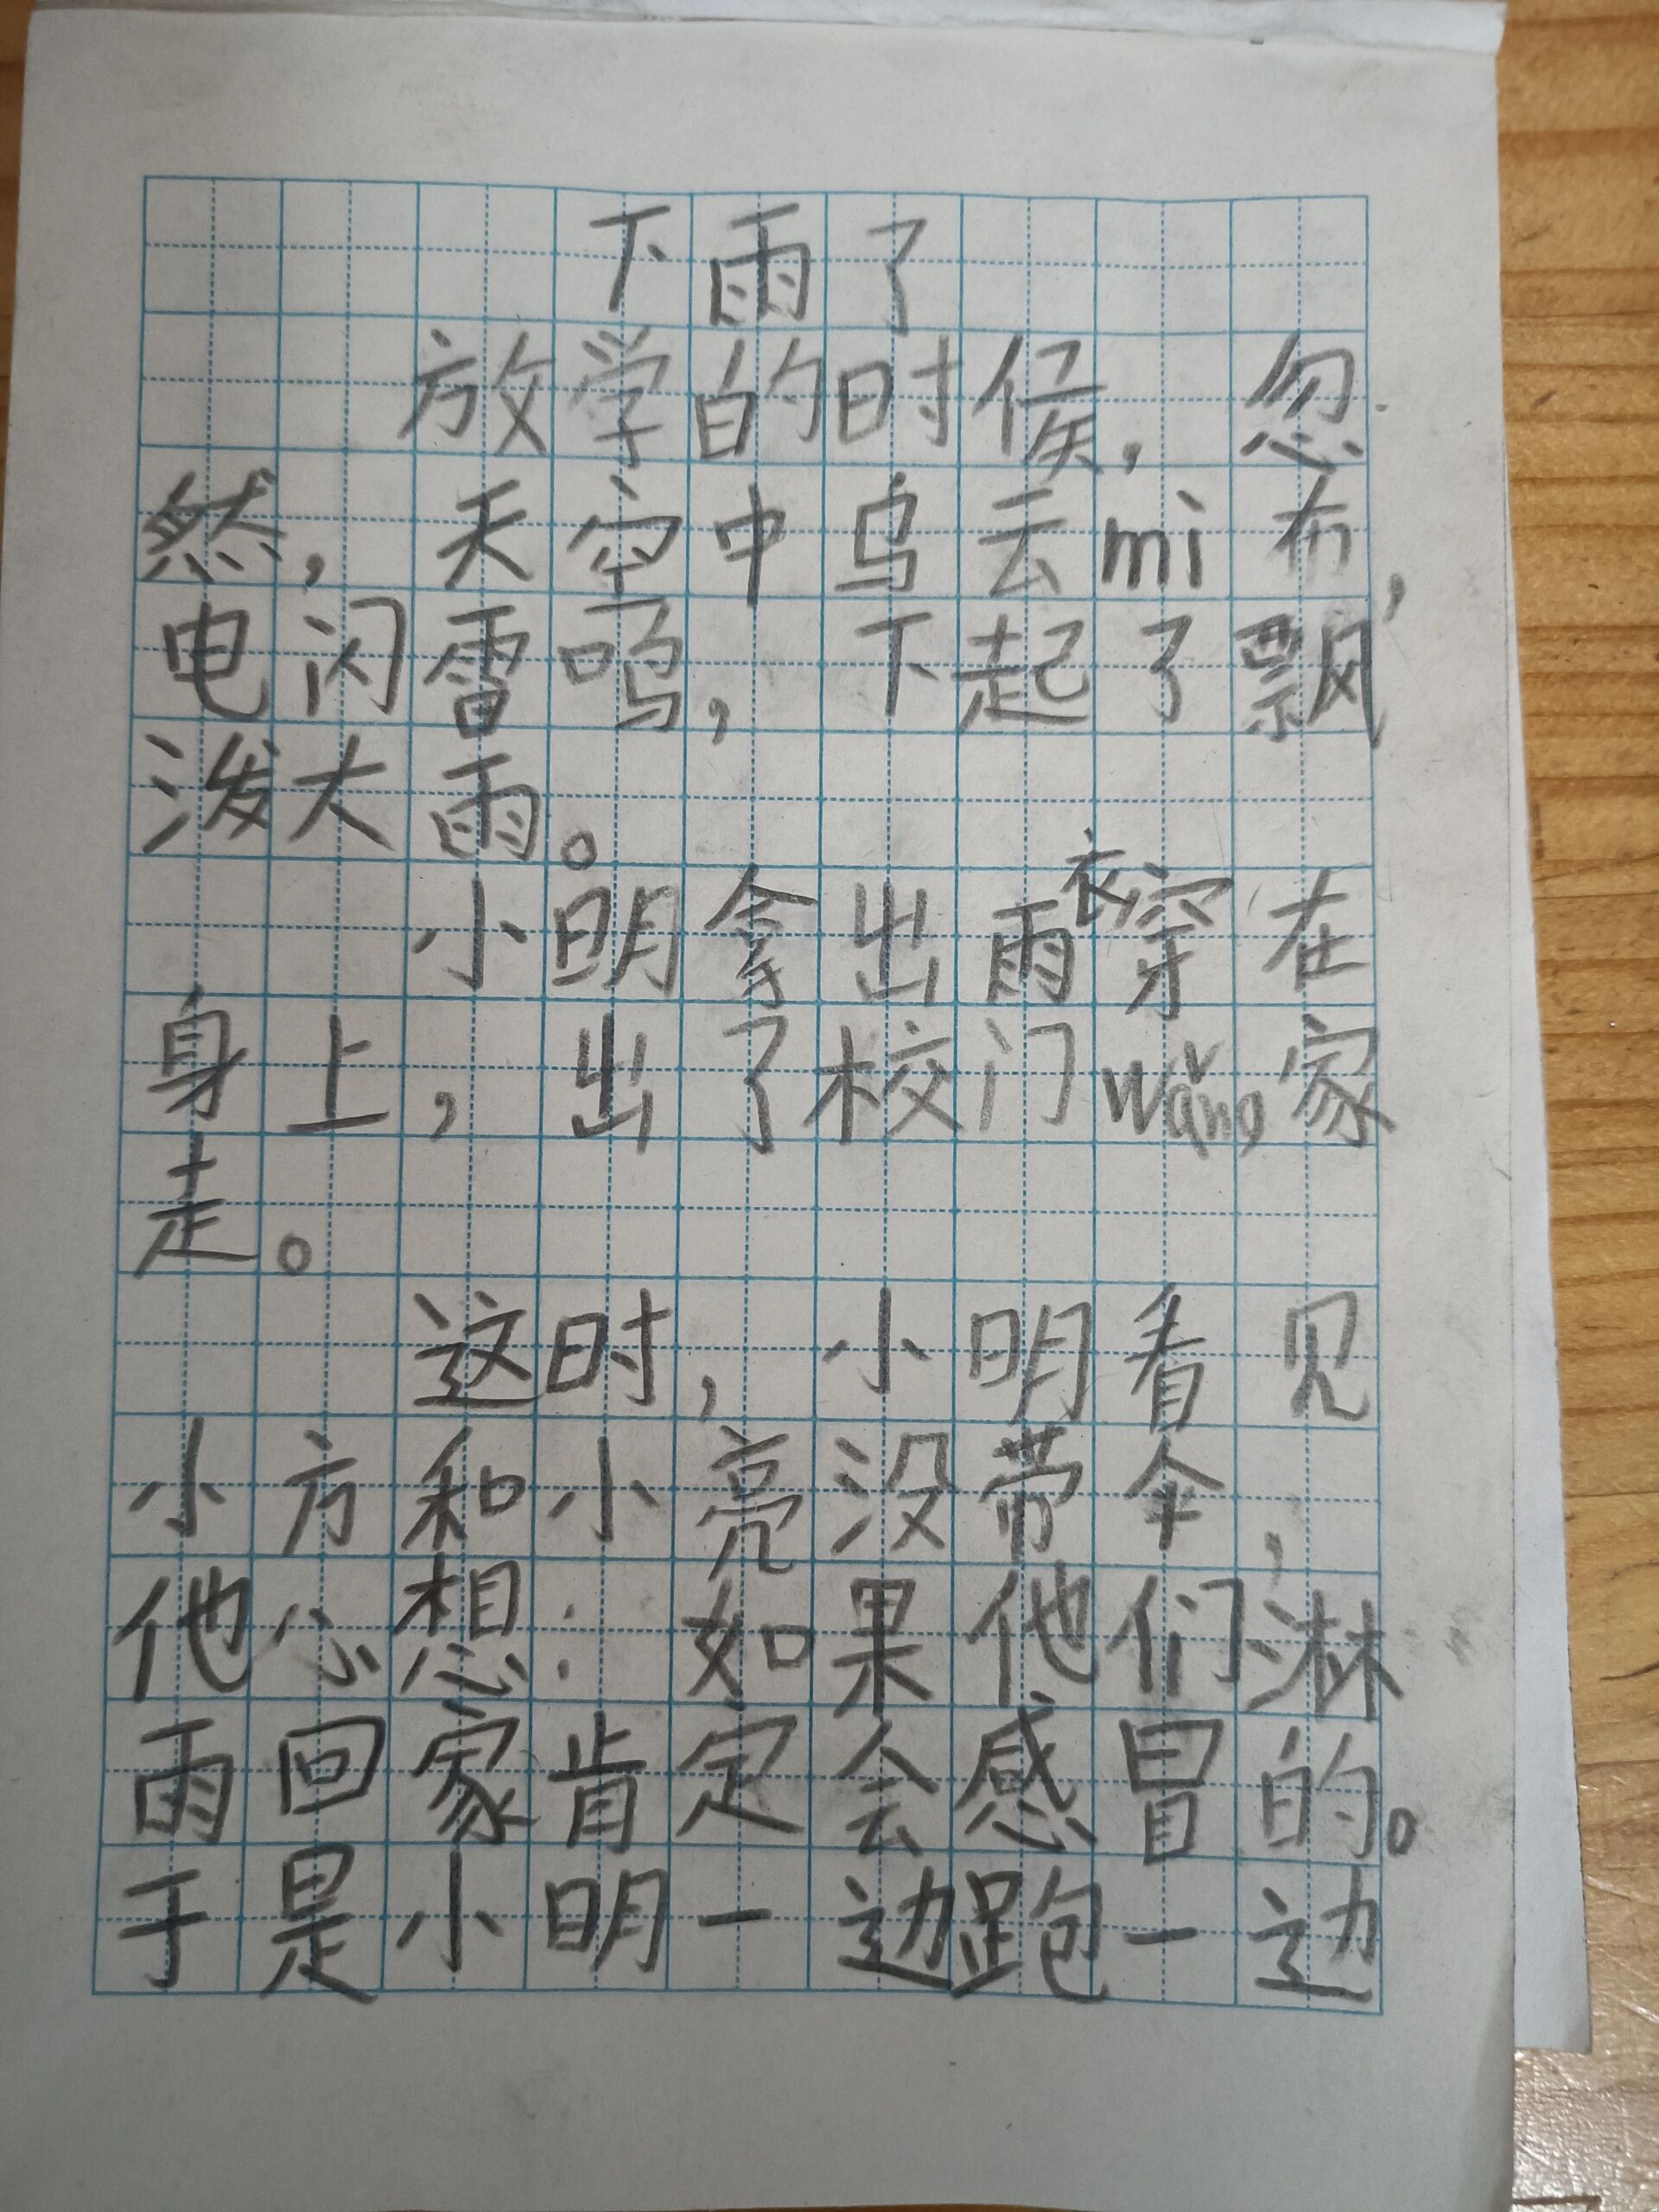 下雨了
放学的时候,忽
然,天空中乌云mi布,
电闪雷鸣,下起了飘
泼大雨。
小明拿出雨衣穿在
身上,出了校门wǎng家
走。
这时,小明看见
小方和小亮没带伞,
他心想:如果他们淋
雨回家肯定会感冒的。
于是小明一边跑一边